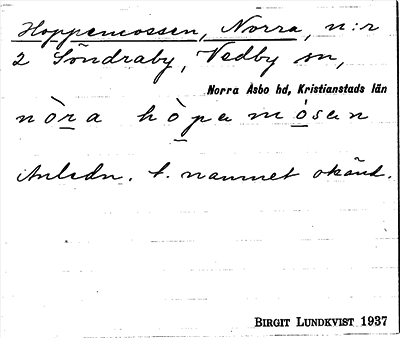 Hoppemossen, Norra, n:r
2 Söndraby, Vedby sn,
Norra Åsbo hd, Kristianstads län
nòra hòpamósan
Anledn. t. namnet okänd.
BIRGIT LUNDKVIST 1937